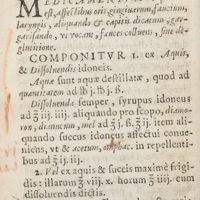 MEDICAMENTVM
est, Asse libus oris, gingivarum, faucium,
laryngis, aliquando & capitis dicatum, gar-
garisando, ut vocant, fauces colluens, sine de-
glutitione.
COMPONITVR 1. ex Aquis,
& Dissolvendis idoneis.
Aquæ sunt aquæ destillatæ, quod ad
quantitatem ad lb j. lb j. ß.
Dissolvenda semper, syrupus idoneus
ad ℥ iij. iiij. aliquando pro scopo, diamo-
ron, dianucum, mel ad ℥ j. ß. ℥ ij. item ali-
quando succus idoneus affectui conve-
niens, ut & acetum, in repellenti-
bus ad ℥ ij. iij.
2. Vel ex aquis & succis maximè frigi-
dis: illarum ℥ viij. x. horum ℥ iij. iiij. cum
dissolvendis dictis.